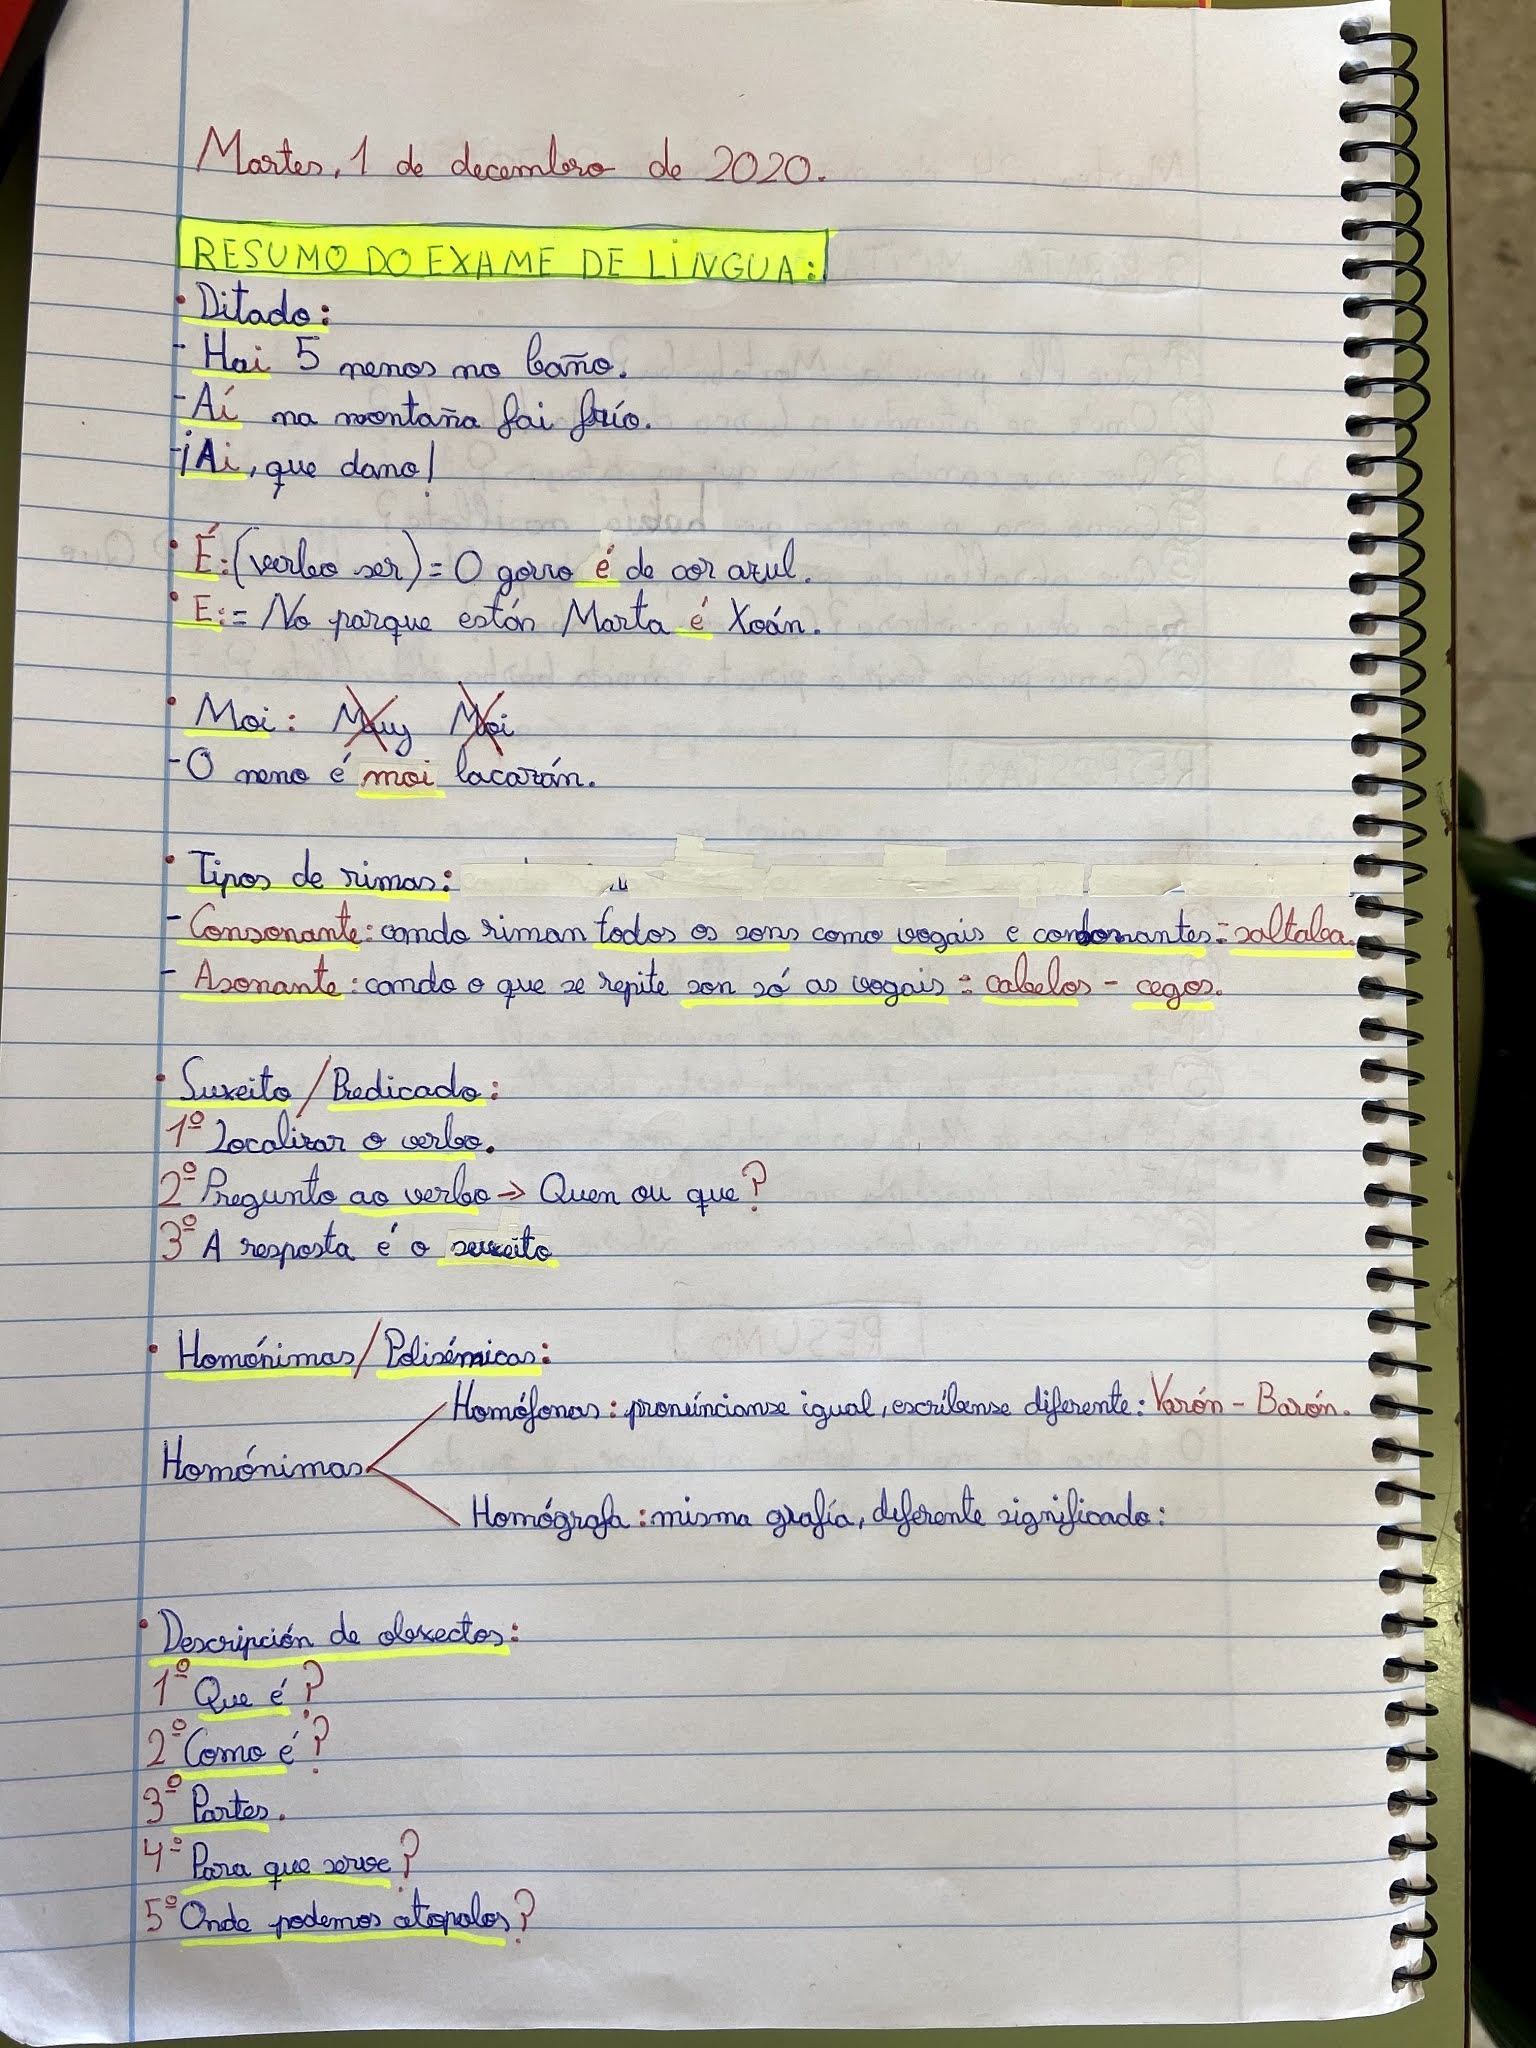 Martes, 1 de decembro de 2020.
RESUMO DO EXAME DE LINGUA:
• Ditado:
- Hai 5 nenos no baño.
- Aí na montaña fai frío.
- ¡Ai, que dano!
• É: (verbo ser) = O gorro é de cor azul.
• E: = No parque están Marta é Xoán.
• Moi: Muy Moi
- O neno é moi lacazán.
• Tipos de rimas:
- Consonante: cando riman todos os sons como vogais e consonantes = saltaba.
- Asonante: cando o que se repite son só as vogais = cabelos - cegos.
• Suxeito / Predicado:
1º Localizar o verbo.
2º Pregunto ao verbo → Quen ou que?
3º A resposta é o suxeito
• Homónimas / Polisémicas:
Homófonas: pronúncianse igual, escríbense diferente: Varón - Barón.
Homónimas
Homógrafa: misma grafía, diferente significado:
• Descripción de obxectos:
1º Que é?
2º Como é?
3º Partes.
4º Para que serve?
5º Onde podemos atopalos?